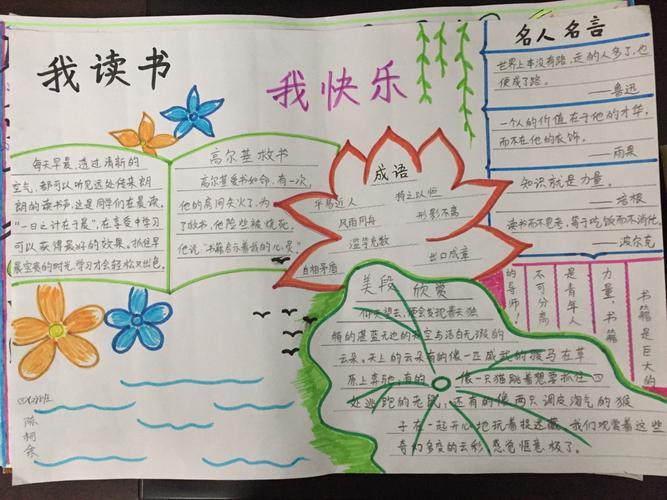 我读书
我快乐
每天早晨，透过清新的
空气，都可以听见远处传来朗
朗的读书声，这是同学们在晨读。
“一日之计在于晨”，在享受中学习
可以获得最好的效果。抓住早
晨宝贵的时光，学习才会轻松又出色。
高尔基救书
高尔基爱书如命，有一次，
他的房间失火了，为
了救书，他险些被烧死，
他说“书籍启示着我的心灵”
成语
平易近人
持之以恒
风雨同舟
形影不离
滥竽充数
出口成章
自相矛盾
名人名言
世界上本没有路，走的人多了，也
便成了路。
——鲁迅
一个人的价值在于他的才华，
而不在他的衣饰。
——雨果
知识就是力量。
——培根
读书而不思考，等于吃饭而不消化。
——波尔克
书籍是巨大的
力量，书籍
是青年人
不可分离
的导师！
美段欣赏
仰天望去，便会发现蓝天独
特的湛蓝无边的天空与洁白无瑕的
云朵。天上的云朵有的像一匹威武的骏马在草
原上奔驰，有的像一只猫跳着想要抓住四
处逃跑的老鼠，还有的像两只调皮淘气的猴
子在一起开心地玩着捉迷藏。我们观赏着这些
奇幻多变的云彩，感觉惬意极了。
陈